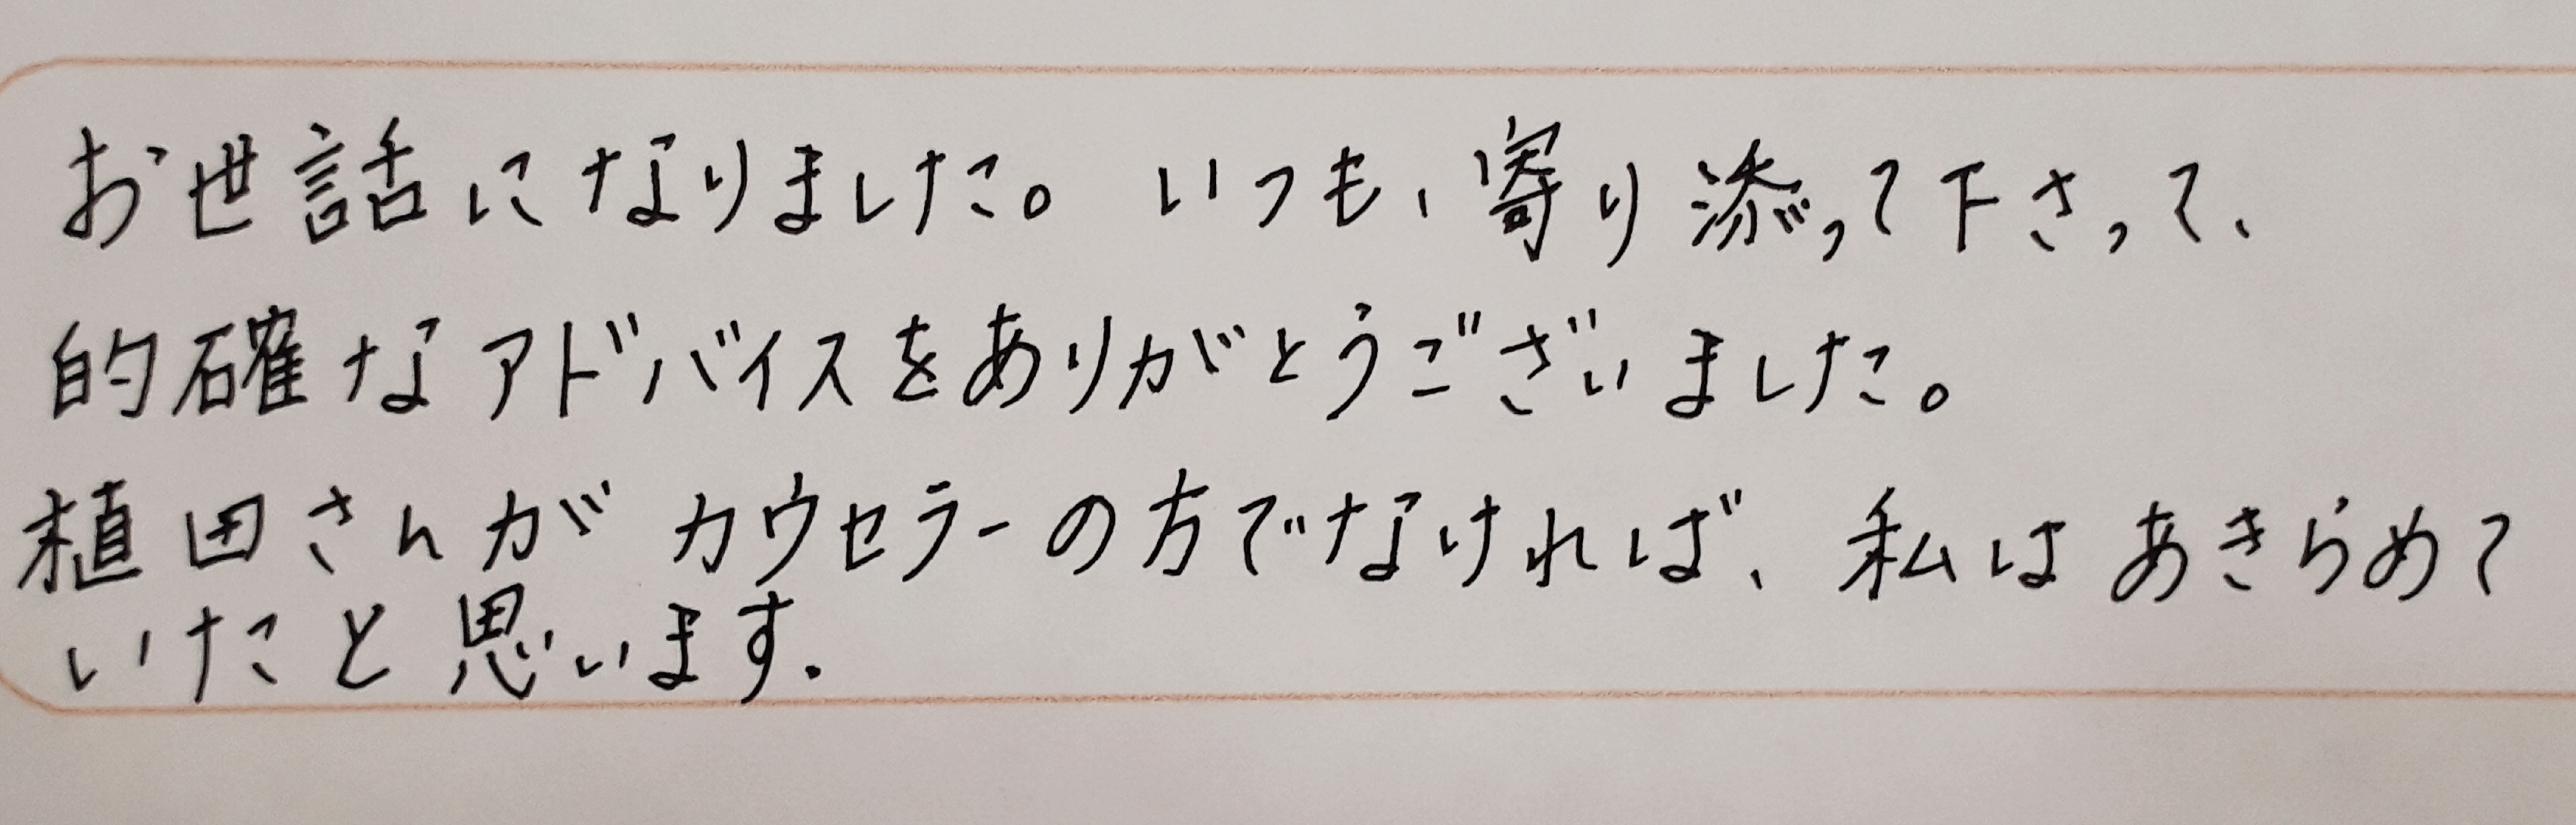 お世話になりました。いつも、寄り添って下さって、
的確なアドバイスをありがとうございました。
植田さんがカウセラーの方でなければ、私はあきらめて
いたと思います.